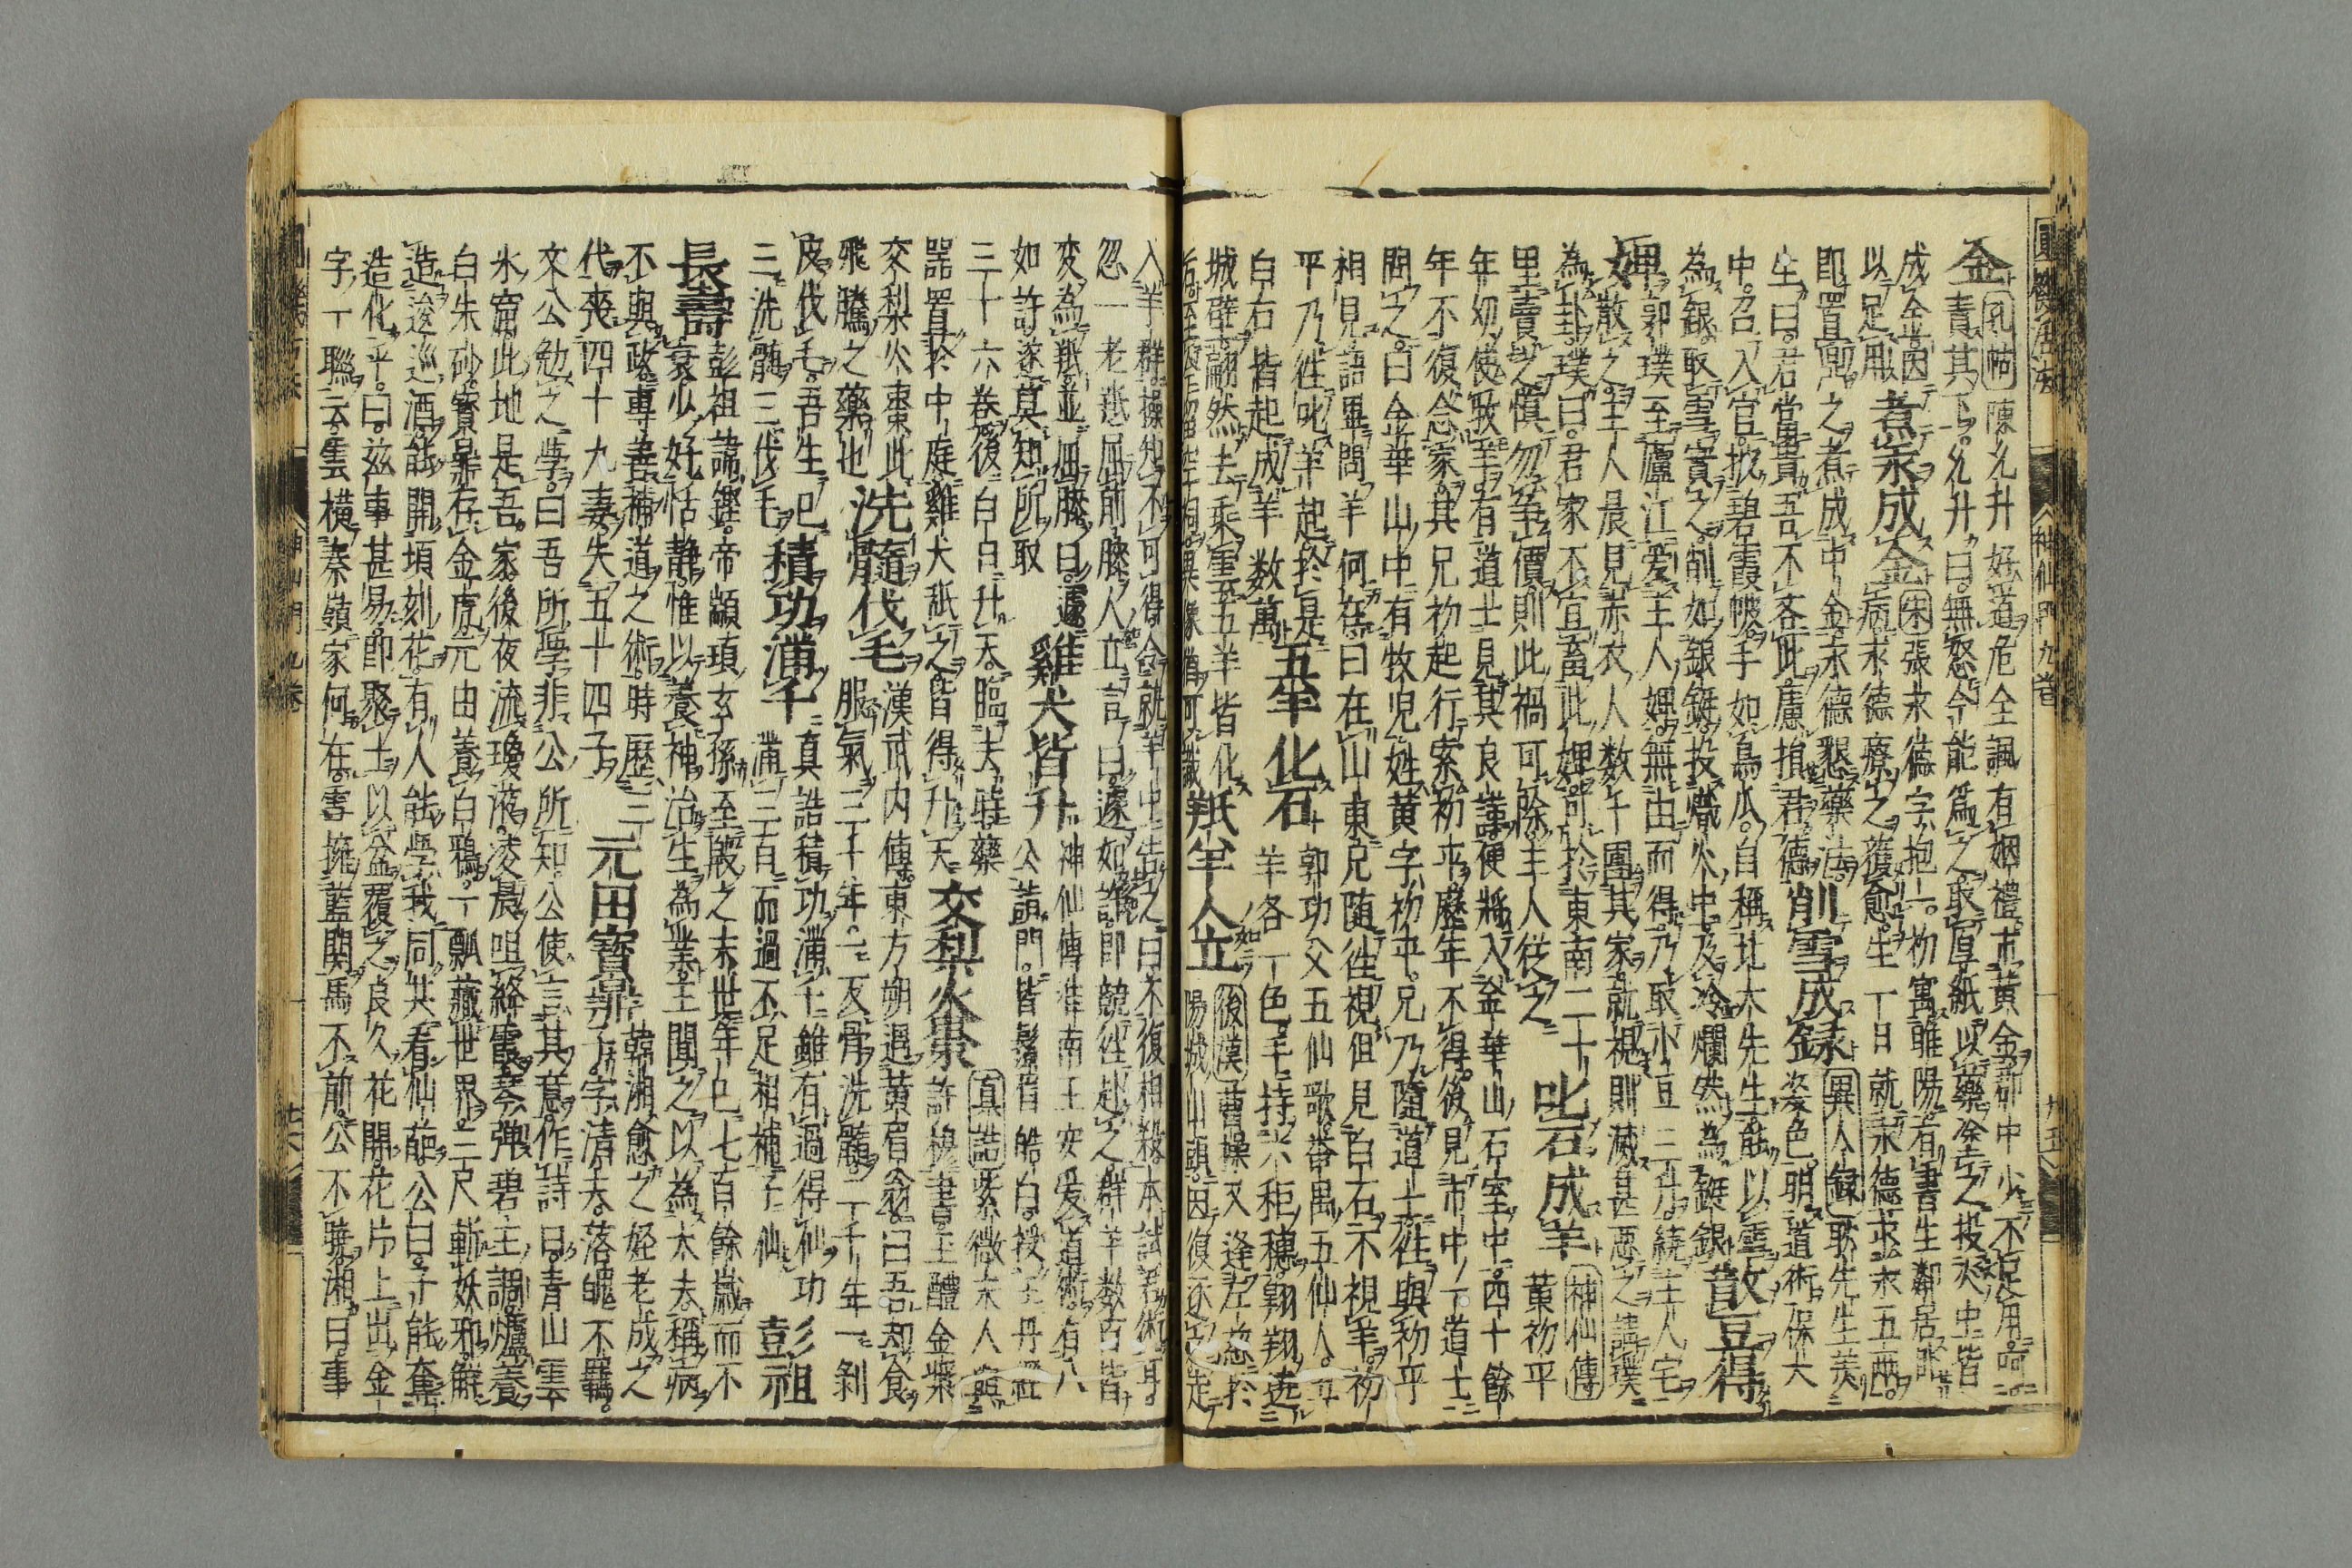 圓機活法 神仙門九卷
金
孔帖 陳允升好道危全諷有姻禮市黃金郡中少不足用
責其下允升曰無怒今能為之取厚紙以藥塗之投火中皆
成金 煮汞成金 宋張永德字抱一初寓睢陽有書生鄰居
以足用 病永德療之獲愈生一日就永德求汞五兩
即置 之煮成中金永德懇藥法 削雪成銀 異人錄 耿先生
生曰君當貴吾不吝此慮損君德 姿色明道術保大
中召入宮披碧霞帔手如鳥爪自稱北大先生能以雪
為銀取雪實之削如銀鋌投熾火中及冷爛然為鋌銀 散豆得
婢 郭璞至廬江愛主人婢無由而得乃取小豆三升繞主人宅
散之主人晨見赤衣人數千圍其家就視則滅甚惡之請璞
為卦璞曰君家不宜畜此婢可於東南二十 叱石成羊 神仙傳
里賣之慎勿爭價則此禍可除主人從之 黃初平
年幼使牧羊有道士見其良謹便將入金華山石室中四十餘
年不復念家其兄初起行索初平歷年不得後見市中一道士
問之曰金華山中有牧兒姓黃字初平兄乃隨道士往與初平
相見語畢問羊何在曰在山東兄隨往視但見白石不視羊初
平乃往叱羊起於是 五羊化石 郭功父五仙歌番禺五仙人
白石皆起成羊數萬 羊各一色手持六秬穗翱翔
城壁翩然去乘 五羊皆化 羝羊人立 後漢 曹操又逢左慈於
陽城山頭因復逐之走
入羊群操知不可得令就羊中告之曰不復相殺本試君術耳
忽一老羝屈前膝人立言曰遽如許即競往赴之群羊數百皆
變為羝並屈膝曰遽 雞犬皆升 神仙傳淮南王安愛道術有八
如許遂莫知所取 公詣門皆鬚眉皓白授王丹經
三十六卷後白日升天臨去時藥 真誥 紫微夫人與
器置於中庭雞犬舐之皆得升天 交梨火棗 許穆書玉醴金漿
交梨火棗此 洗髓伐毛 漢武內傳東方朔遇黃眉翁曰吾却食
飛騰之藥也 服氣三千年一反骨洗髓二千年一剝
皮伐毛吾生已 積功滿千 真誥積功滿千雖有過得仙功
三洗髓三伐毛 滿三百而過不足相補子仙 彭祖
長壽 彭祖諱鏗帝顓頊玄孫至殷之末世年已七百餘歲而不
衰少好恬靜惟以養神治生為業王聞之以為大夫稱病
不與政專善補道之術時歷三 元田寶鼎 韓湘愈之姪老成之
代喪四十九妻失五十四子 子字清夫落魄不羈
文公勉之學曰吾所學非公所知公使言其意作詩曰青山雲
水窟此地是吾家後夜流瓊液凌晨咀絳霞琴彈碧玉調爐養
白朱砂寶鼎存金虎元田養白鴉一瓢藏世界三尺斬妖邪解
造逡巡酒能開頃刻花有人能學我同共看仙葩公曰子能奪
造化乎曰茲事甚易即聚土以盆覆之良久花開花片上出金
字一聯云雲橫秦嶺家何在雪擁藍関馬不前公不曉湘曰事
神仙門九卷